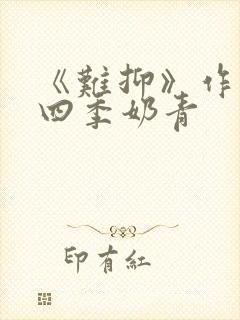 《難抑》作
四季奶青
印有紅